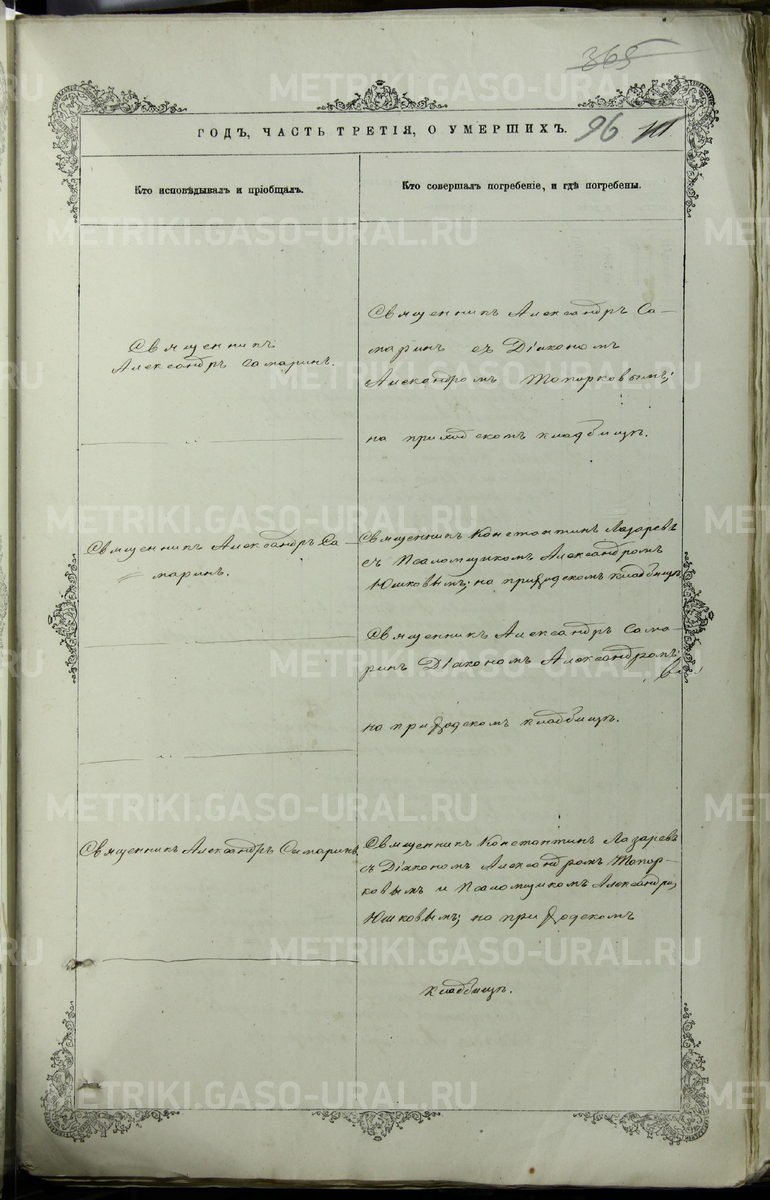 365
ГОДЪ, ЧАСТЬ ТРЕТІЯ, О УМЕРШИХЪ.
96
Кто исповѣдывалъ и пріобщалъ.
Кто совершалъ погребеніе, и гдѣ погребены.
Священникъ
Александръ Самаринъ.
Священникъ Александръ Са-
маринъ съ Діакономъ
Александромъ Топорковымъ;
на приходскомъ кладбищѣ.
Священникъ Александръ Са-
маринъ.
Священникъ Константинъ Лазаревъ
съ Псаломщикомъ Александромъ
Юшковымъ; на приходскомъ кладбищѣ
Священникъ Александръ Сама-
ринъ Діакономъ Александромъ
на приходскомъ кладбищѣ.
Священникъ Александръ Самаринъ
Священникъ Константинъ Лазаревъ
съ Діакономъ Александромъ Топор-
ковымъ и Псаломщикомъ
Юшковымъ; на приходскомъ
кладбищѣ.
METRIKI.GASO-URAL.RU